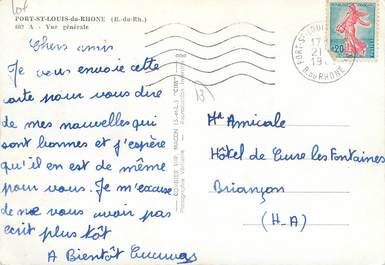 Lot
PORT-ST-LOUIS-du-RHONE (B.-du-Rh.)
402 A - Vue générale
Chers amis
Je vous envoie cette
carte pour vous dire
de mes nouvelles qui
sont bonnes et j'espère
qu'il en est de même
pour vous. Je m'excuse
de ne vous avoir pas
écrit plus tôt
A Bientôt
COMBIER IMP. MACON (S.-et-L.) "CIM"
PORT-ST-LOUIS
B. DU RHONE
17
21
19
0,20
13
Amicale
Hôtel de Cure les Fontaines
Briançon
(H-A)